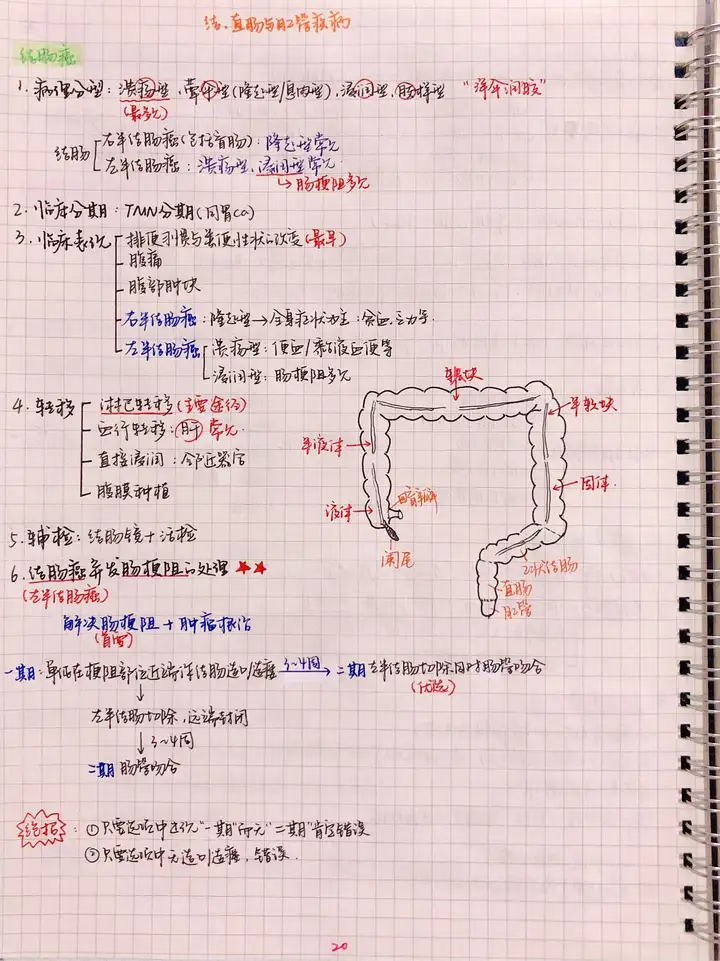 结、直肠与肛管疾病
结肠癌
1. 病理分型：溃疡型、隆起型(隆起型/息肉型)、浸润型、肠样型
(最多见)
结肠 右半结肠癌(包括盲肠)：隆起型常见
左半结肠癌：溃疡型、浸润型常见
↳肠梗阻多见
2. 临床分期：TMN分期(同胃ca)
3. 临床表现 排便习惯与粪便性状的改变(最早)
腹痛
腹部肿块
右半结肠癌：隆起型→全身症状为主：贫血、乏力等.
左半结肠癌 溃疡型：便血/黏液血便等
浸润型：肠梗阻多见
4. 转移 淋巴转移(主要途径)
血行转移：肝 常见.
直接浸润：邻近器官
腹膜种植
软块
半软块
半液体
固体.
液体
回盲瓣
阑尾
乙状结肠
直肠
肛管
5. 辅检：结肠镜+活检
6. 结肠癌并发肠梗阻的处理 ★★
(左半结肠癌)
解决肠梗阻+肿瘤根治
(首要)
一期：单纯在梗阻部位近端作结肠造口造瘘 3~4周→ 二期 左半结肠切除同时肠管吻合
(优选)
↓
左半结肠切除，远端封闭
↓3~4周
二期 肠管吻合
绝招：①只要选项中出现“一期”而无“二期”肯定错误
②只要选项中无造口造瘘，错误.
20